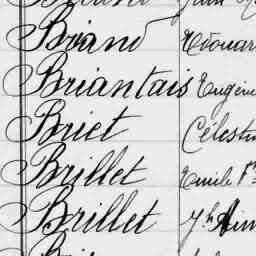 Briand Édouar
Briantais Eugène
Briet Célesti
Brillet Emile F
Brillet